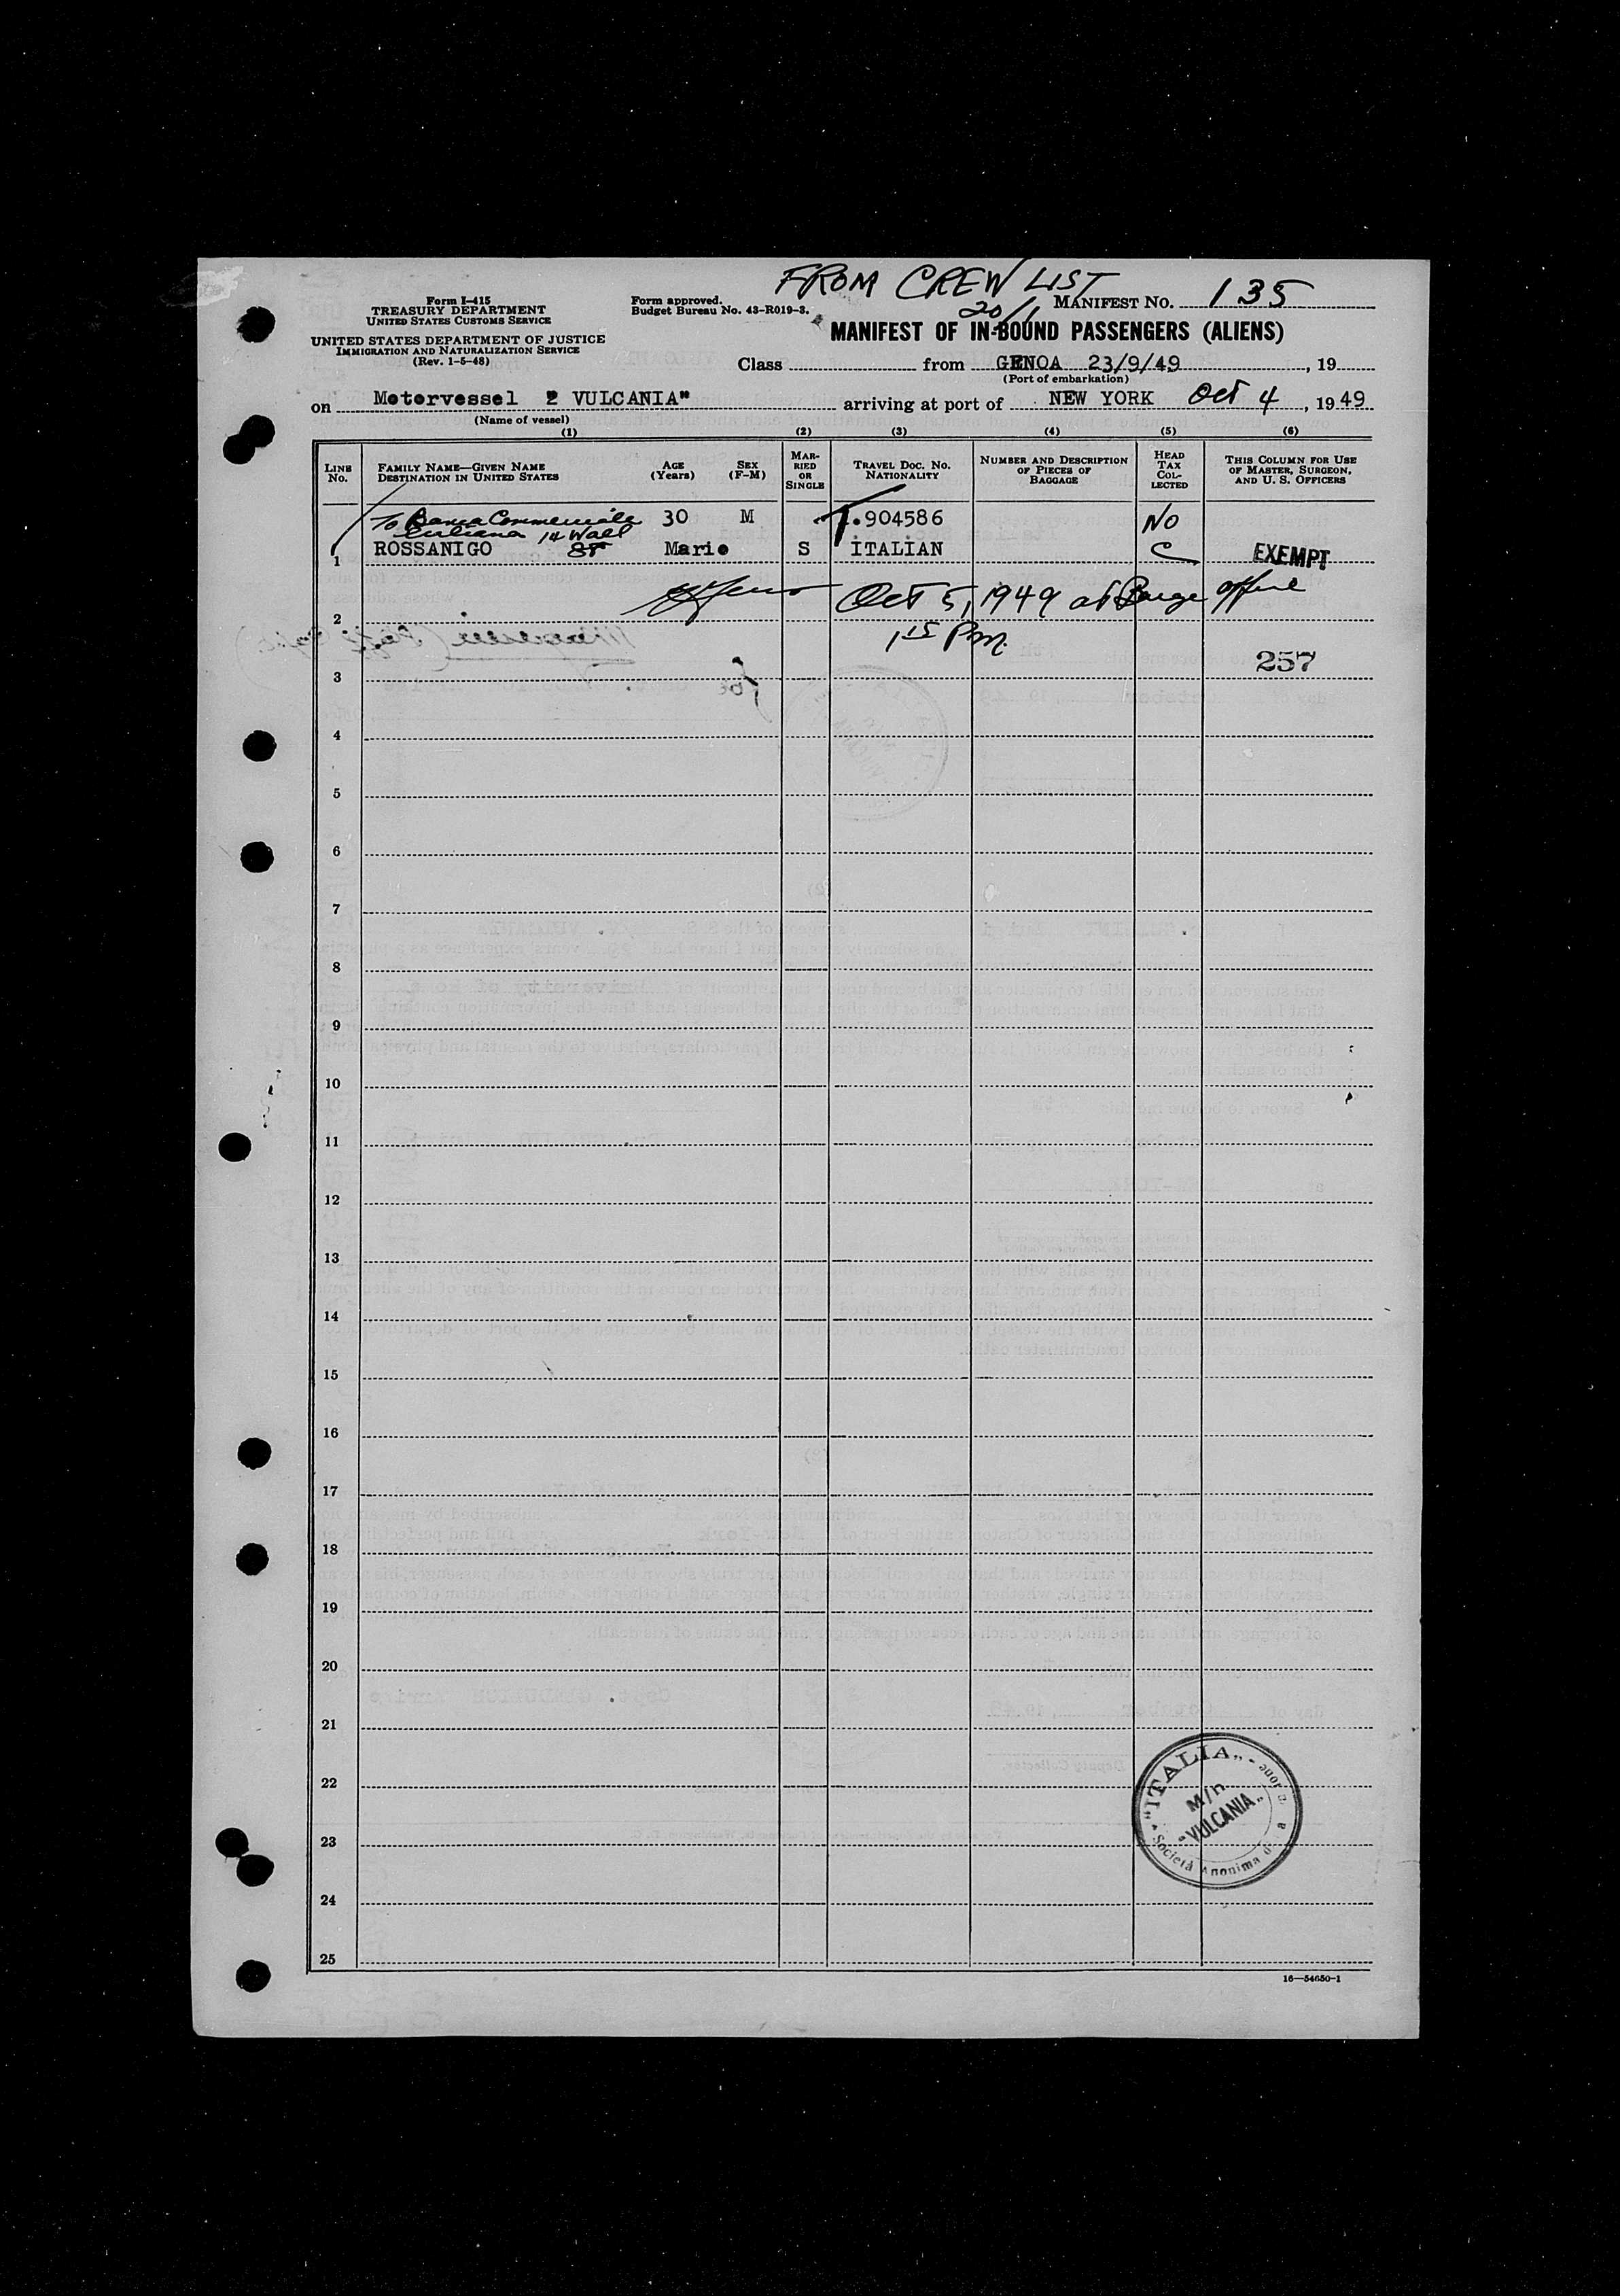 FROM CREW LIST
20/1
Form I-415
TREASURY DEPARTMENT
UNITED STATES CUSTOMS SERVICE
UNITED STATES DEPARTMENT OF JUSTICE
IMMIGRATION AND NATURALIZATION SERVICE
(Rev. 1-5-48)
Form approved.
Budget Bureau No. 43-R019-3.
MANIFEST NO. 135
MANIFEST OF IN-BOUND PASSENGERS (ALIENS)
Class from GENOA 23/9/49, 19
(Port of embarkation)
on Motorvessel 2 VULCANIA" arriving at port of NEW YORK Oct 4, 1949
(Name of vessel)
(1) (2) (3) (4) (5) (6)
LINE NO.
FAMILY NAME—GIVEN NAME
DESTINATION IN UNITED STATES
AGE (Years)
SEX (F-M)
MARRIED OR SINGLE
TRAVEL DOC. NO.
NATIONALITY
NUMBER AND DESCRIPTION OF PIECES OF BAGGAGE
HEAD TAX COLLECTED
THIS COLUMN FOR USE OF MASTER, SURGEON, AND U. S. OFFICERS
To Banca Commerciale 30 M T.904586 No
Italiana 14 Wall
1 ROSSANIGO St Mario S ITALIAN C EXEMPT
2 Oct 5, 1949 at Barge Office
1 15 P.M.
3 257
4
5
6
7
8
9
10
11
12
13
14
15
16
17
18
19
20
21
22
23
24
25
"ITALIA"
M/n
"VULCANIA"
Società Anonima di
16—54650-1